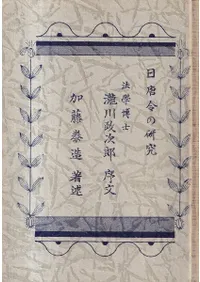 日唐令の研究
法學博士
瀧川政次郎 序文
加藤泰造 著述